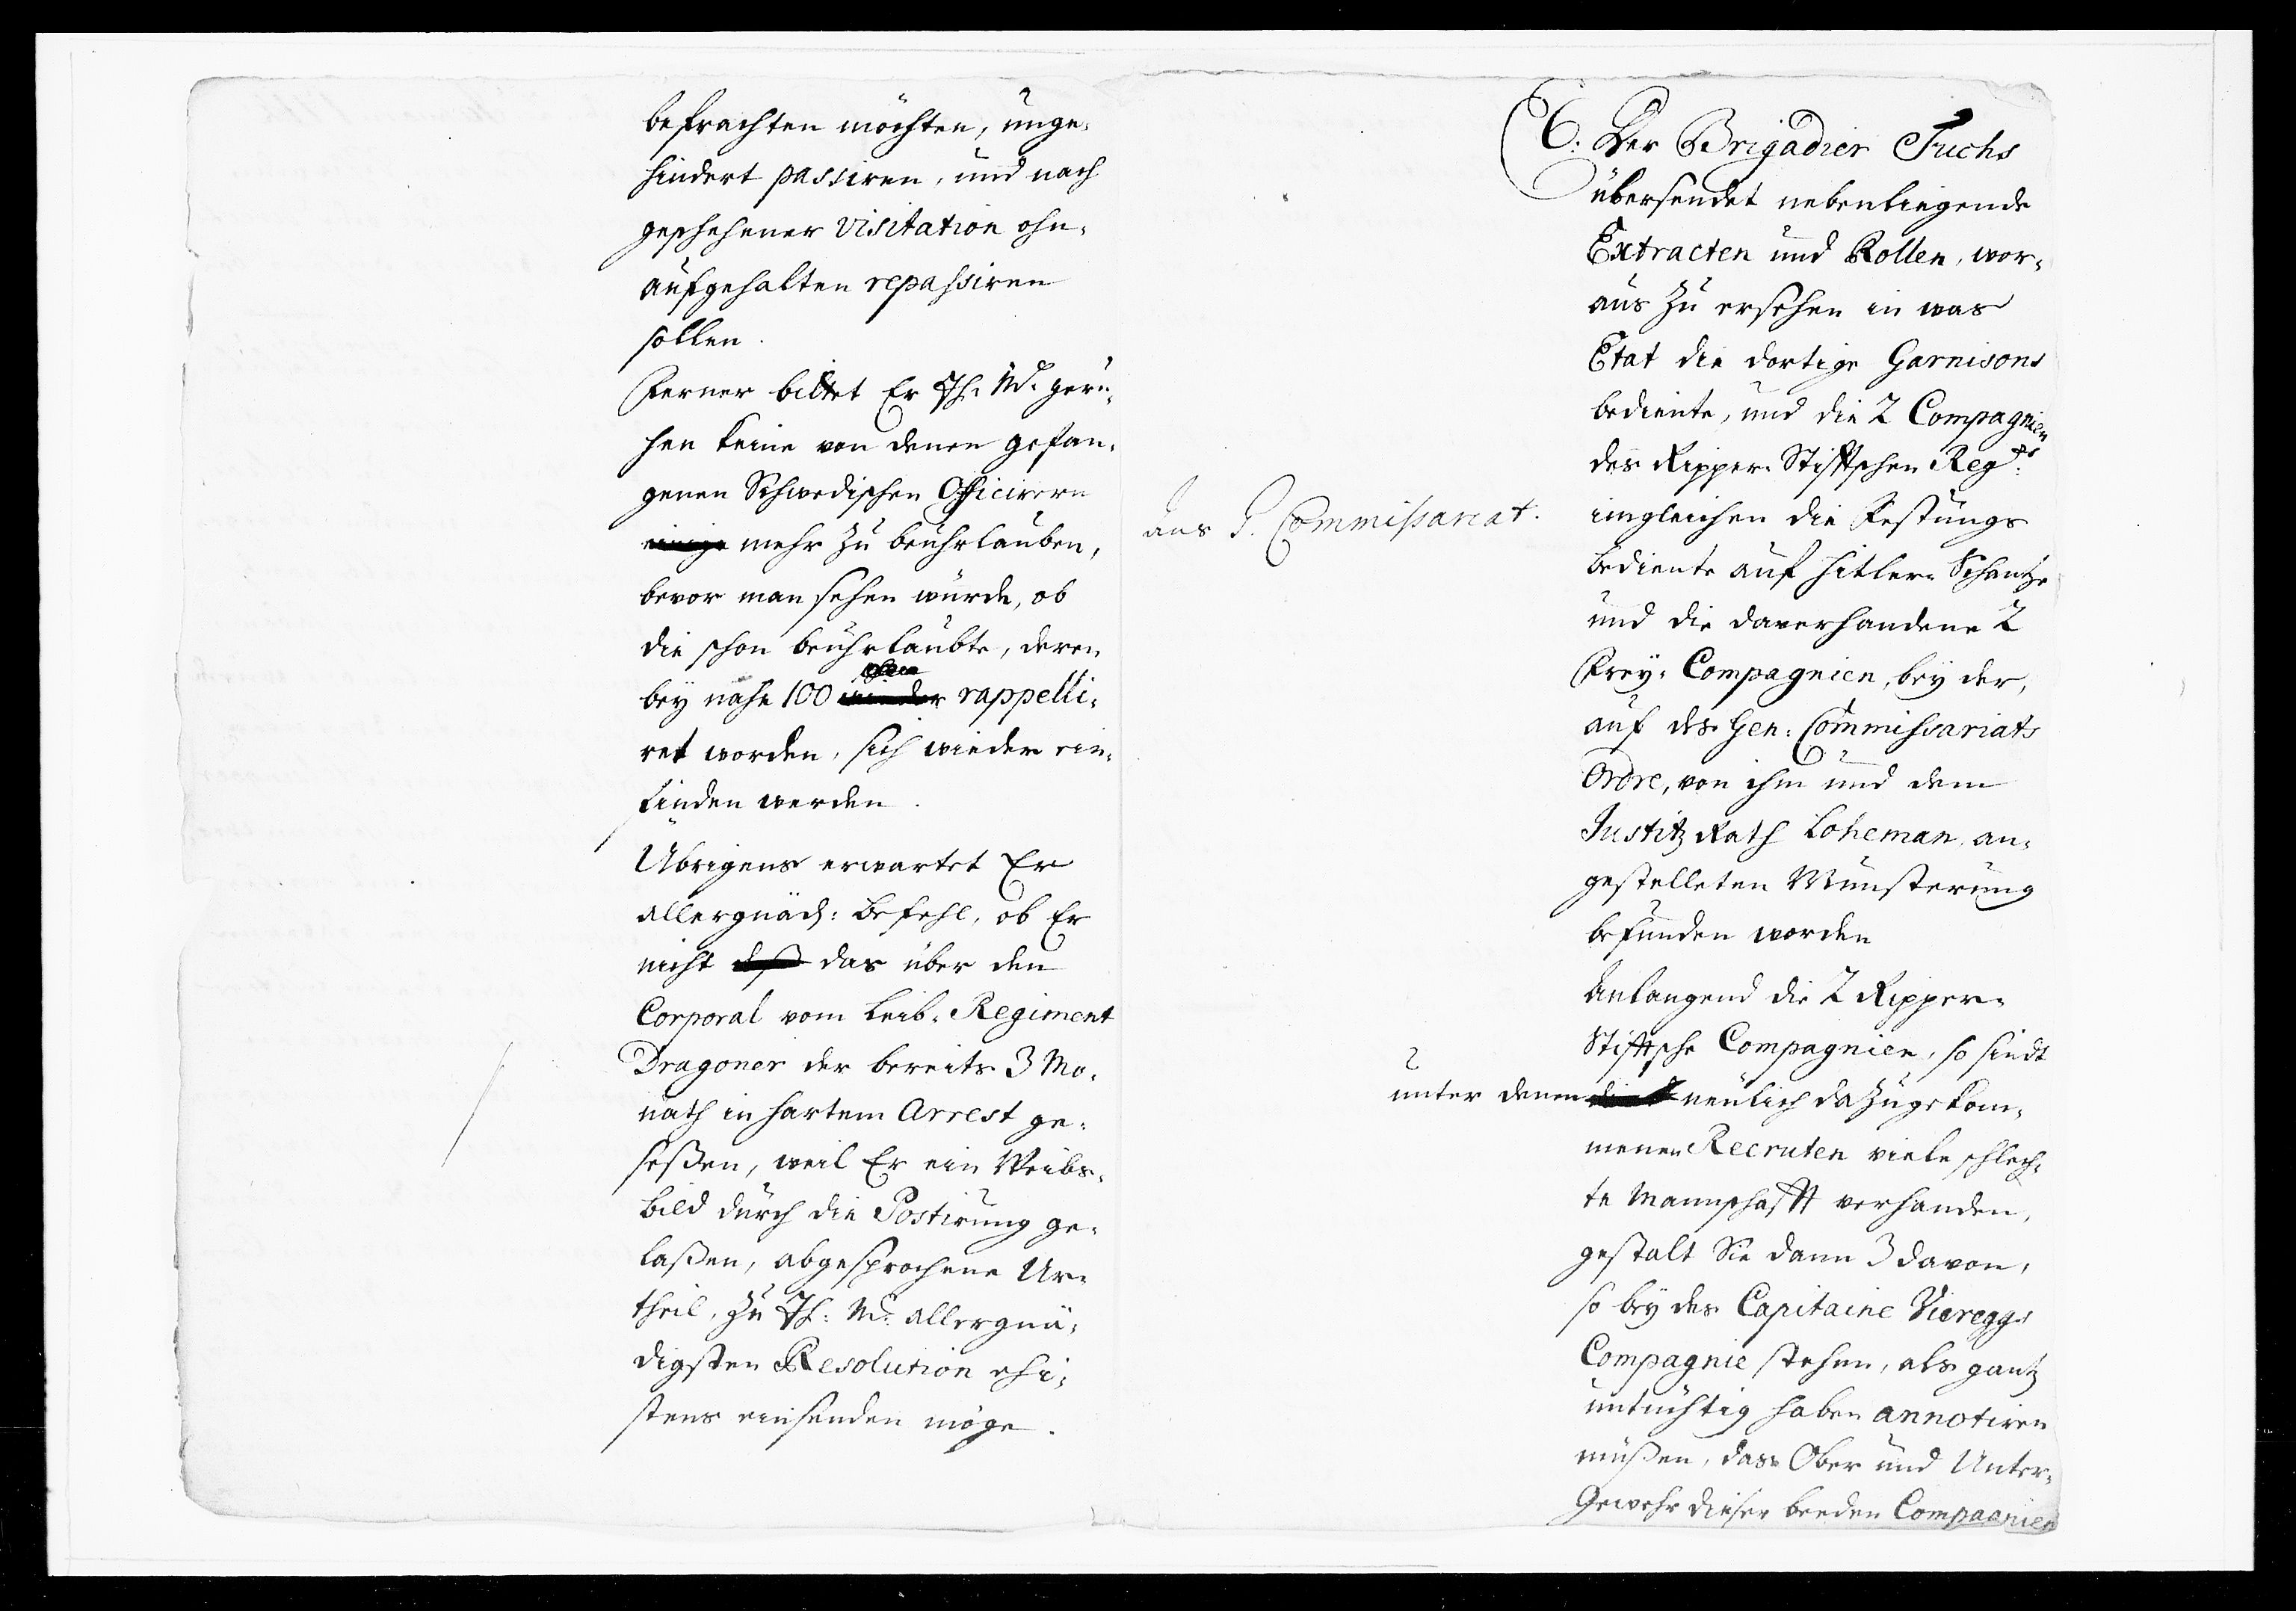 befrachten möchten, unge-
hindert passiren, und nach
geschehener visitation ohn-
aufgehalten repassiren
sollen.
Ferner bittet Er Jh. M. geru-
hen keine von denen gefan-
genen Schwedischen Officirern
einige mehr zu beuhrlauben,
bevor man sehen würde, ob
die schon beuhrlaubte, deren
bey nahe 100 wieder rappelli-
ret worden, sich wieder ein-
finden werden.
Übrigens erwartet Er
allergnäd: Befehl, ob Er
nicht das über den
Corporal vom Leib-Regiment
Dragoner der bereits 3 Mo-
nath in hartem Arrest ge-
seßen, weil Er ein Weibs-
bild durch die Postirung ge-
laßen, abgesprochene Ur-
theil, zu Jh: M: allergnä-
digsten Resolution ehi-
stens einsenden möge.
ans G. Commissariat.
6. Der Brigadier Fuchs
übersendet nebenliegende
Extracten und Rollen, wor-
aus zu ersehen in was
Etat die dortige Garnisons
bediente, und die 2 Compagnien
des Ripper-Stifftschen Regts:
imgleichen die Festungs
bediente auf Hitler-Schantze
und die daverhandene 2
Frey-Compagnien, bey der,
auf des Gen: Commissariats
Ordre, von ihm und dem
Justitz Rath Loheman, an-
gestelleten Münsterung
befunden worden
Anlangend die 2 Ripper-
Stifftsche Compagnien, so sindt
unter denen neulich dazugekom-
menen Recruten viele schlech-
te Mannschafft verhanden,
gestalt Sie dann 3 davon,
so bey des Capitaine Vieregg
Compagnie stehen, als gantz
untüchtig haben annotiren
müßen, das Ober und Unter-
Gewehr dieser beeden Compagnien